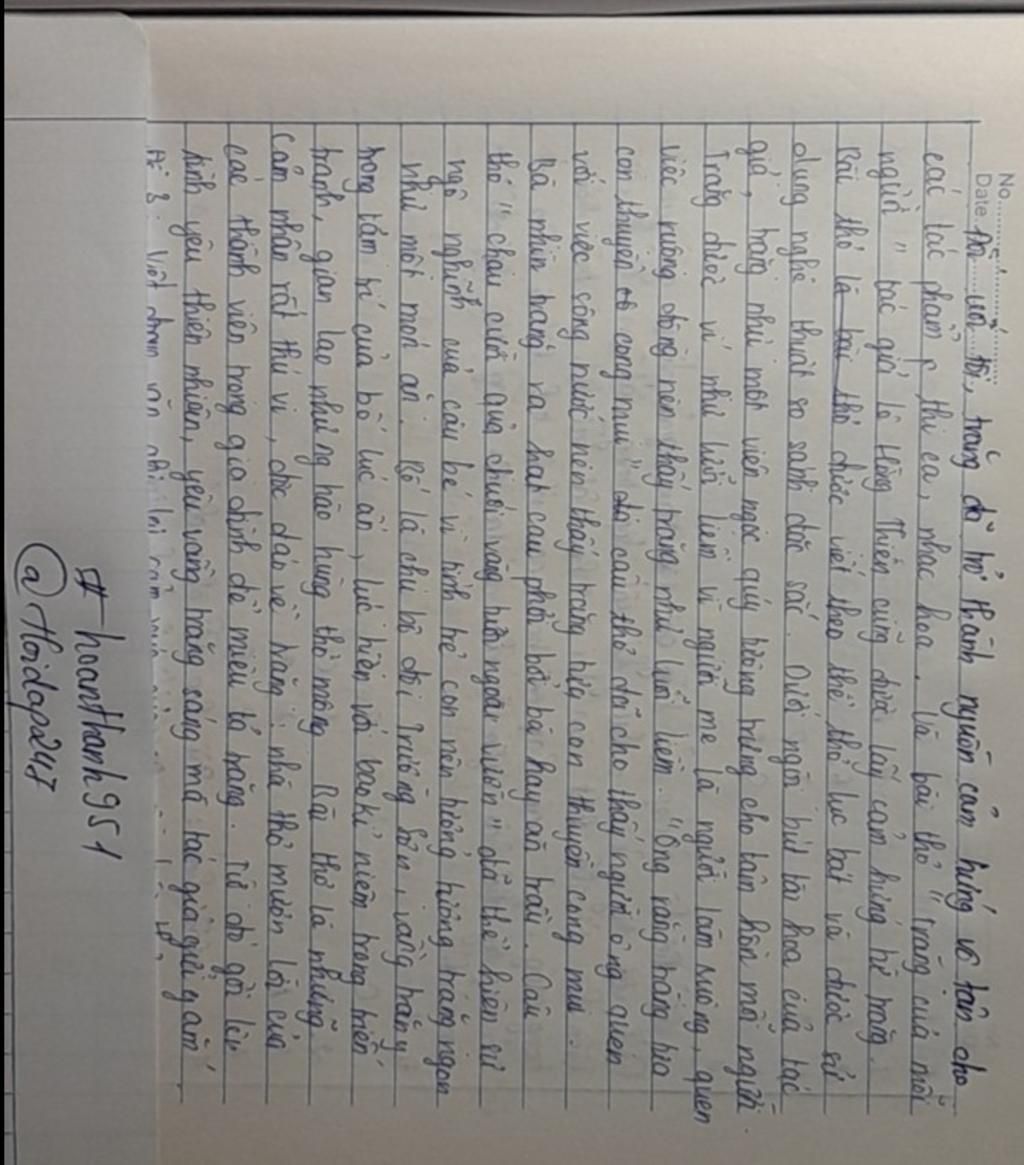 No.
Date
Từ xưa tới, trăng đã trở thành nguồn cảm hứng vô tận cho
các tác phẩm thi ca, nhạc hoạ. Và bài thơ "Trăng của mỗi
người" tác giả Lê Hồng Thiện cũng đưa lấy cảm hứng từ trăng.
Bài thơ là bài thơ được viết theo thể thơ lục bát và được sử
dụng nghệ thuật so sánh đặc sắc. Dưới ngòi bút tài hoa của tác
giả, trăng như một viên ngọc quý tượng trưng cho tâm hồn mỗi người.
Trăng được ví như lưỡi liềm vì người mẹ là người làm ruộng, quen
việc ruộng đồng nên thấy trăng như lưỡi liềm. "Ông rằng trăng tựa
con thuyền cong mui" câu thơ đã cho thấy người ông quen
với việc sông nước nên thấy trăng tựa con thuyền cong mui.
Bà nhìn trăng ra hạt cau phơi bởi bà hay ăn trầu. Câu
thơ "cháu cười quả chuối vàng tươi ngoài vườn" đã thể hiện sự
ngộ nghĩnh của cậu bé vì tính trẻ con nên tưởng tượng trăng ngon
như một món ăn. Bố là chú bộ đội Trường Sơn, vầng trăng
trong tâm trí của bố lúc ẩn, lúc hiện và bao kỉ niệm trong chiến
tranh, gian lao nhưng hào hùng thơ mộng. Bài thơ là những
Cảm nhận rất thú vị, độc đáo về trăng: nhà thơ mượn lời của
các thành viên trong gia đình để miêu tả trăng. Từ đó gửi lên
tình yêu thiên nhiên, yêu vầng trăng sáng mà tác giả gửi gắm
Viết đoạn văn ghi lại cảm
#hoanthanh951
@Hoidap247